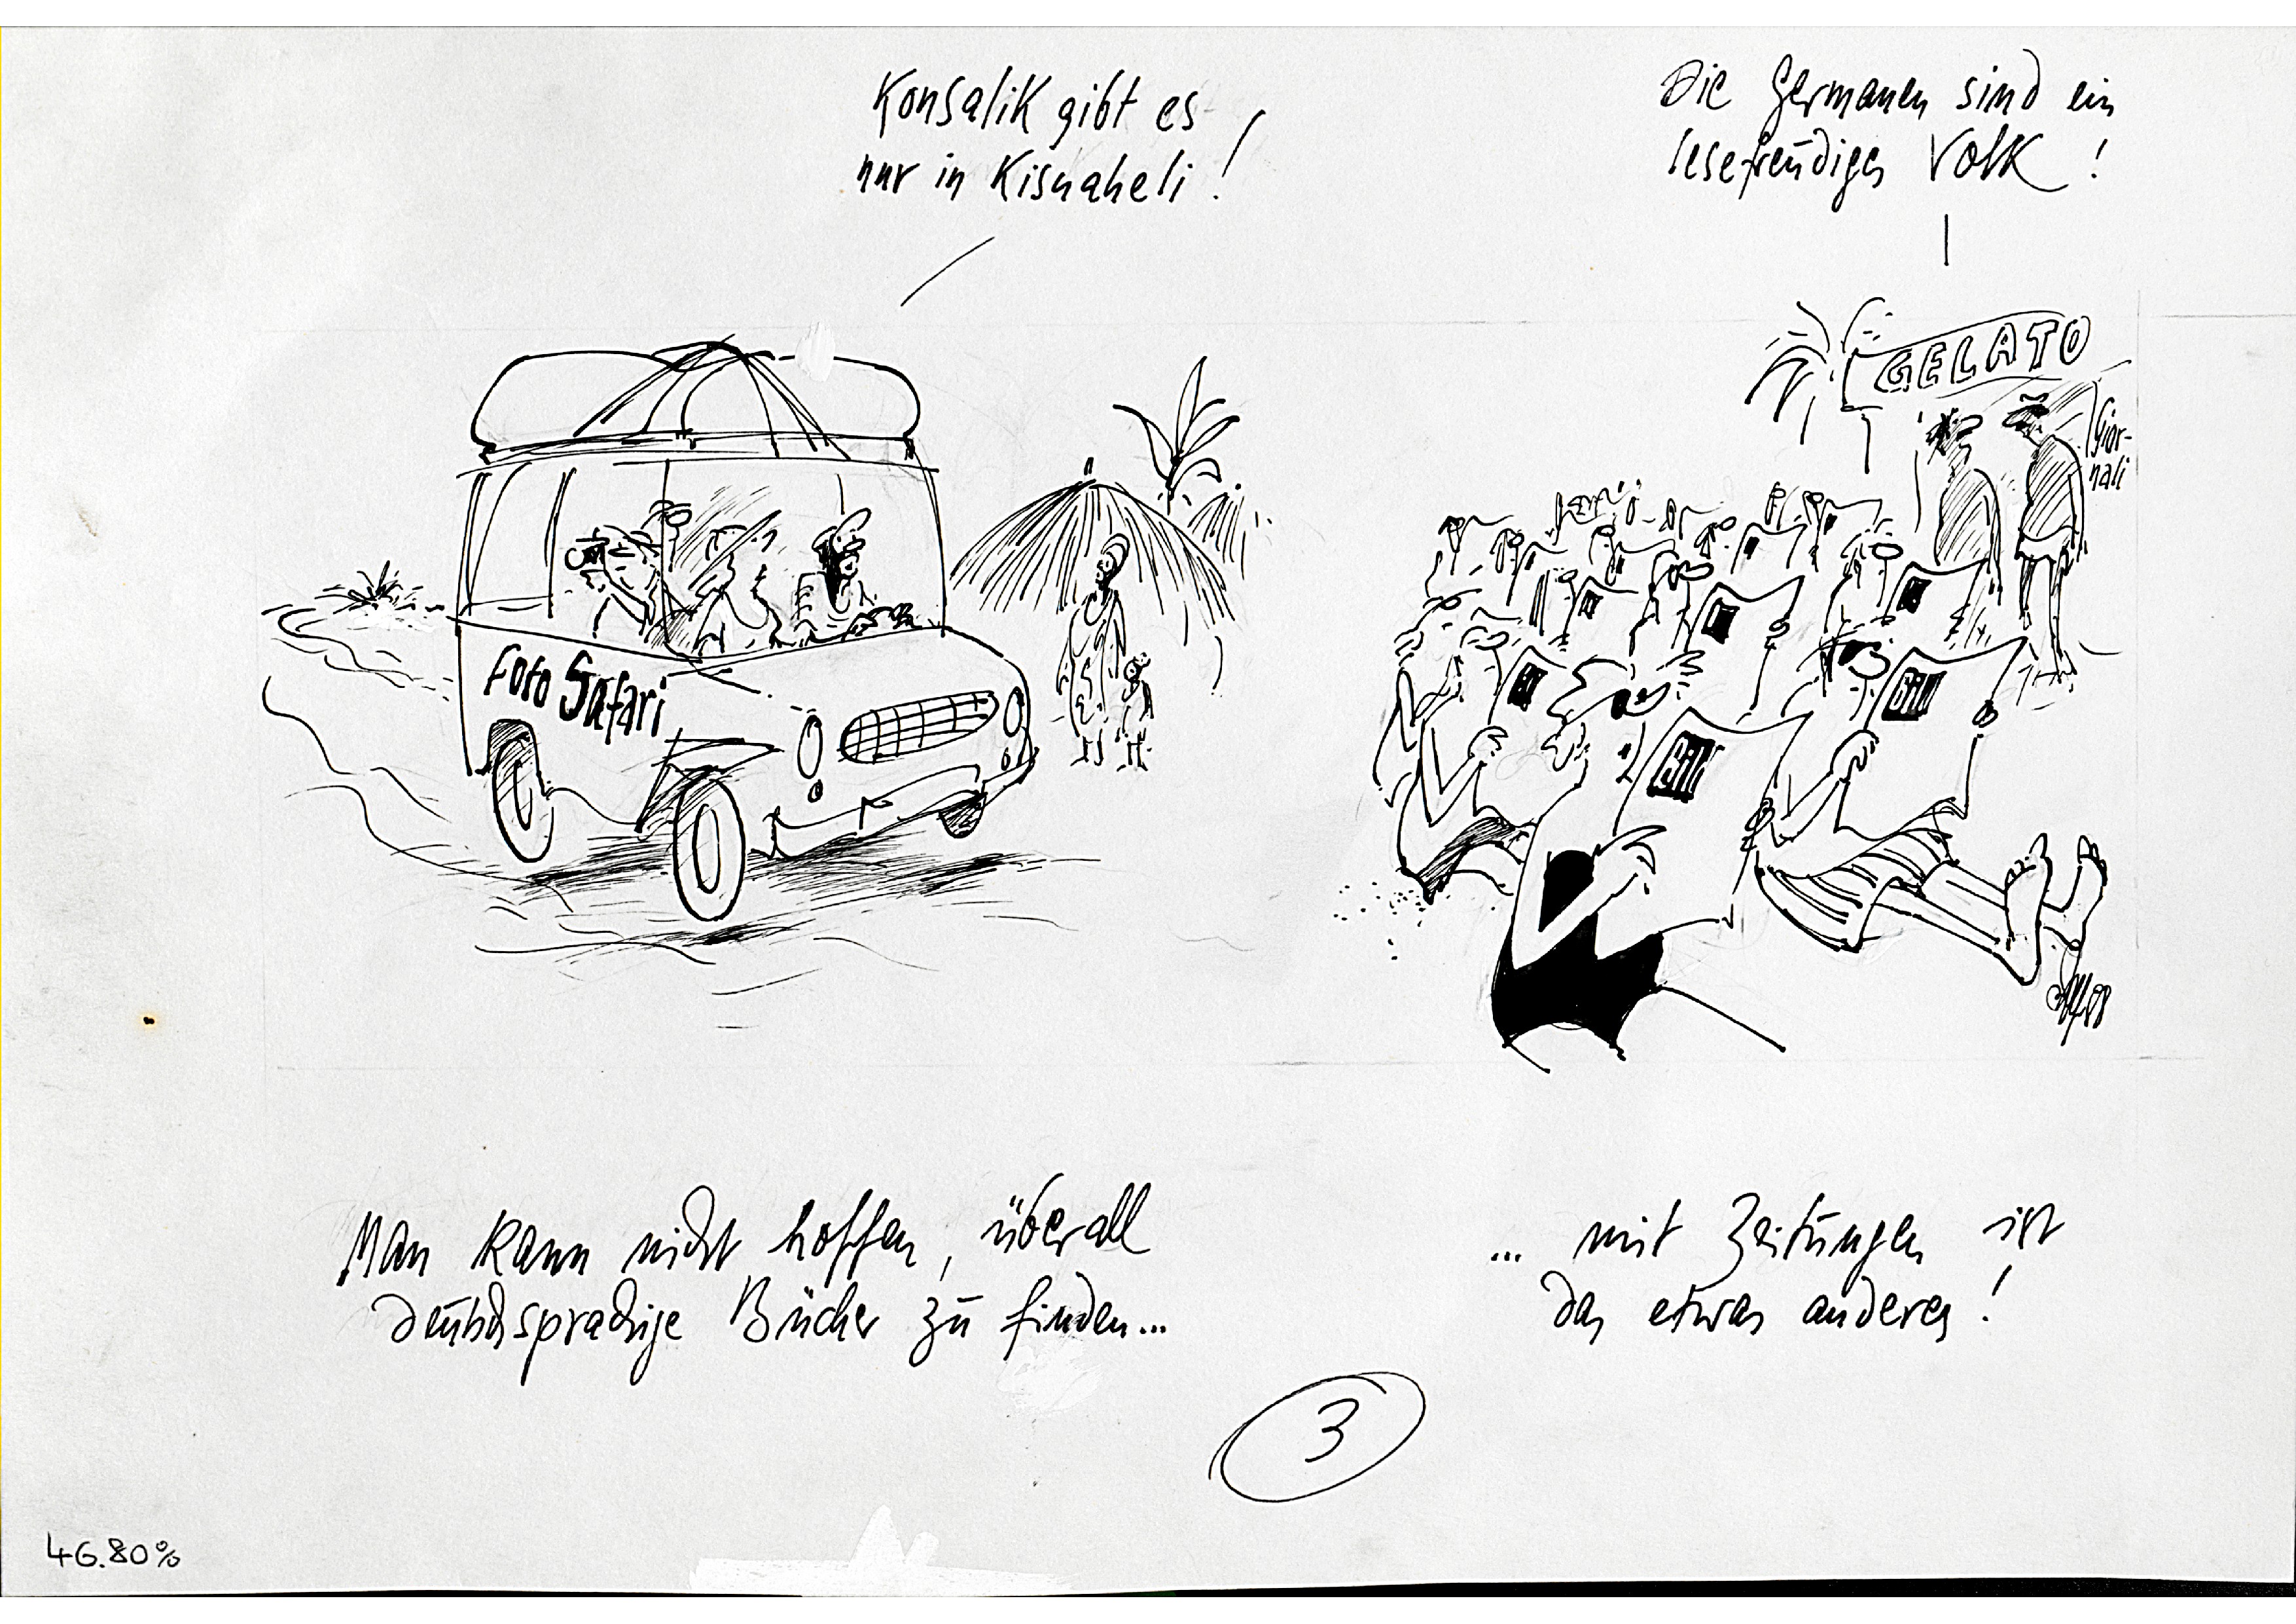 Konsalik gibt es
nur in Kisuaheli!
Die Germanen sind ein
lesefreudiges Volk!
GELATO
Gior-
nali
Foto Safari
Bild
Bild
Man kann nicht hoffen, überall
deutschsprachige Bücher zu finden...
... mit Zeitungen ist
das etwas anderes!
3
46.80%